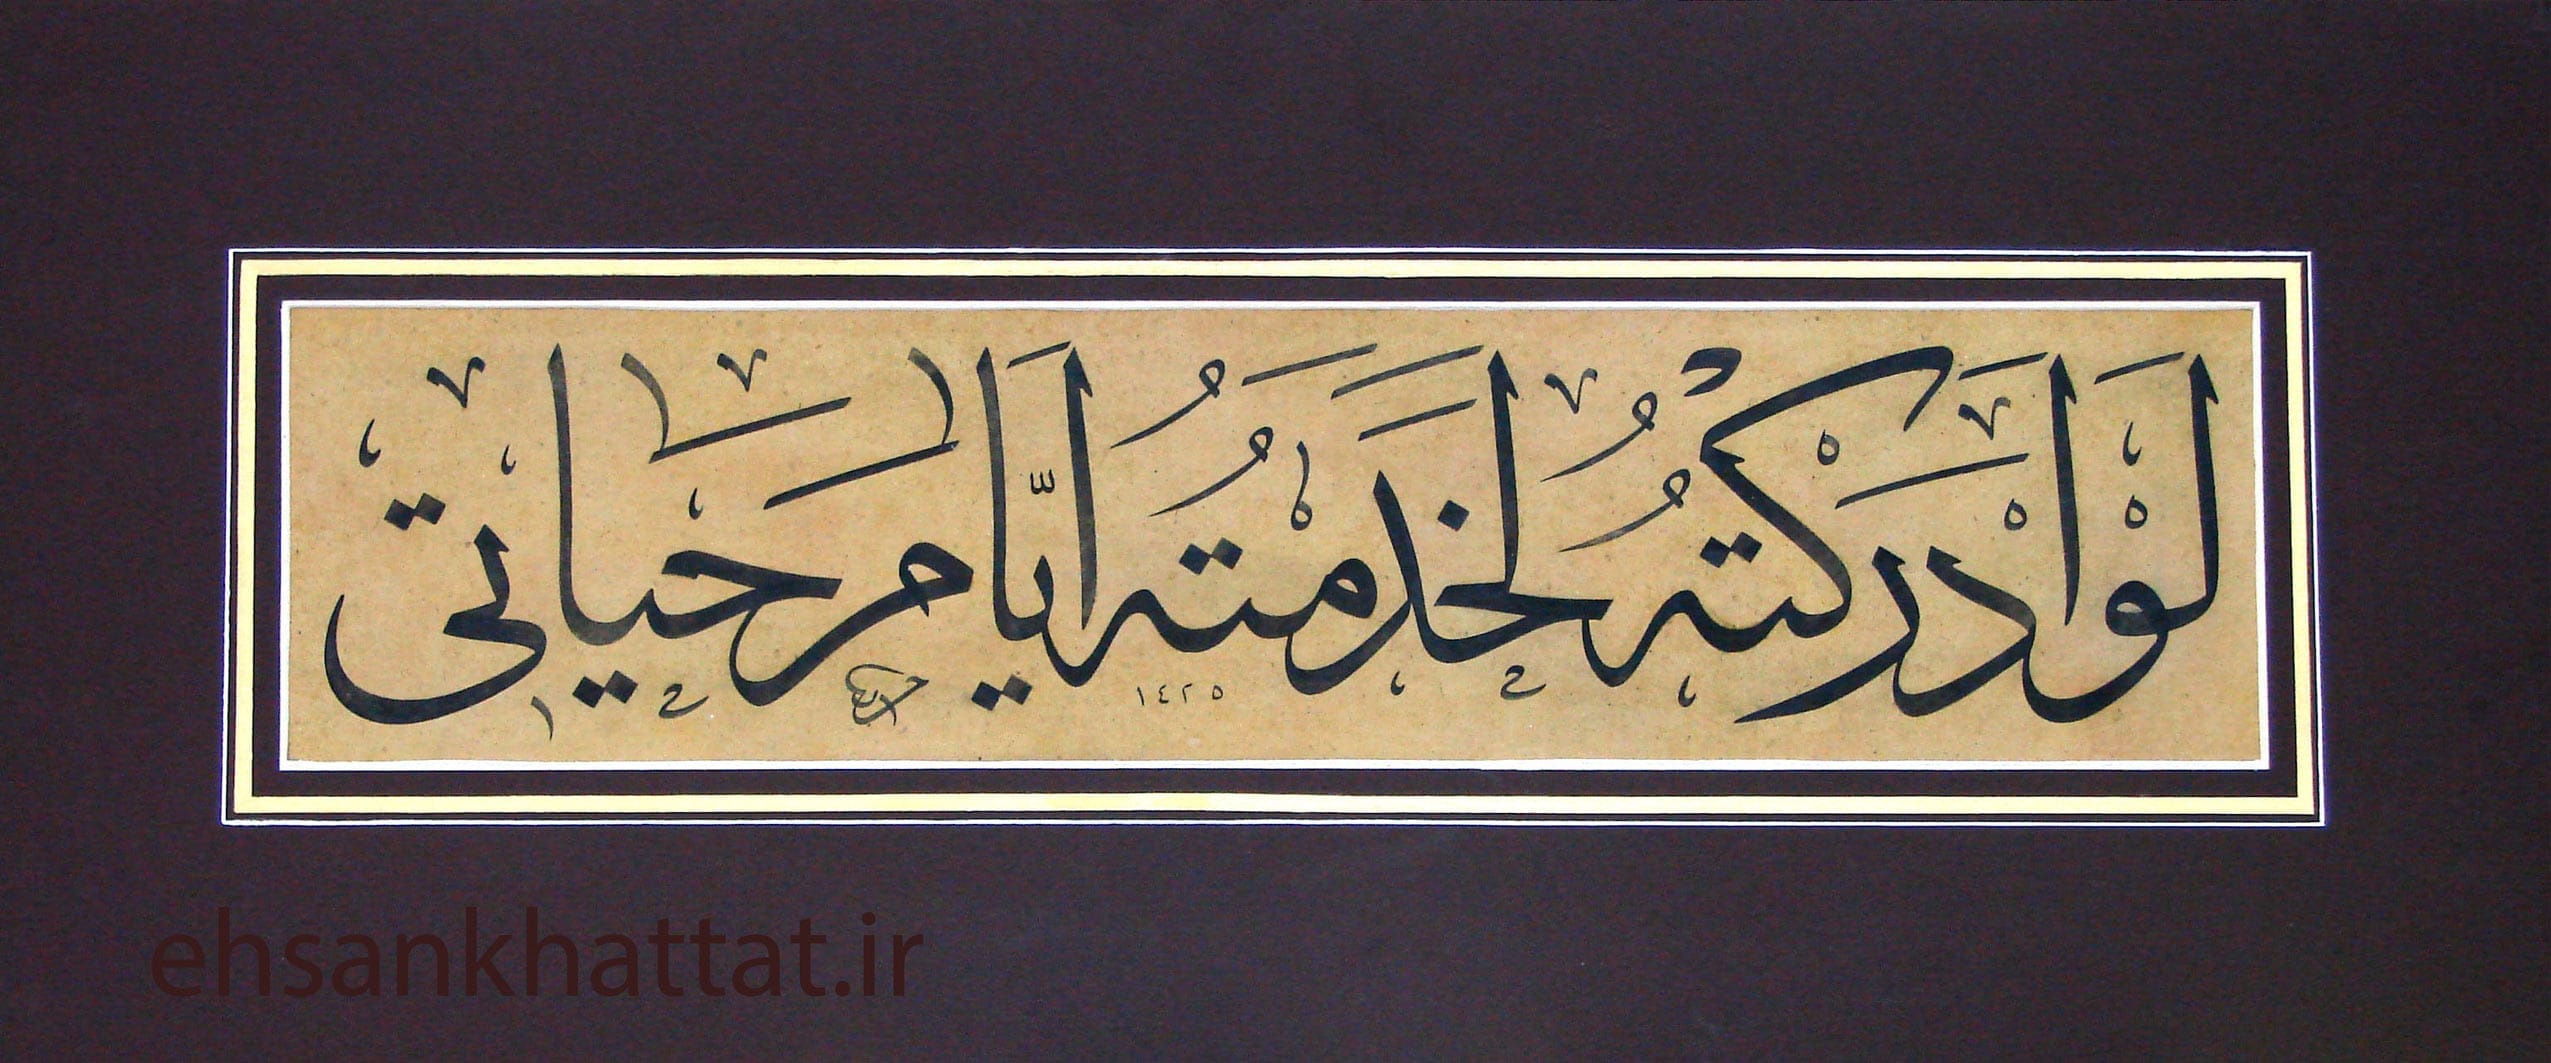 لَوْ أَدْرَكْتُهُ لَخَدَمْتُهُ أَيَّامَ حَيَاتِي
١٤٢٥
ehsankhattat.ir